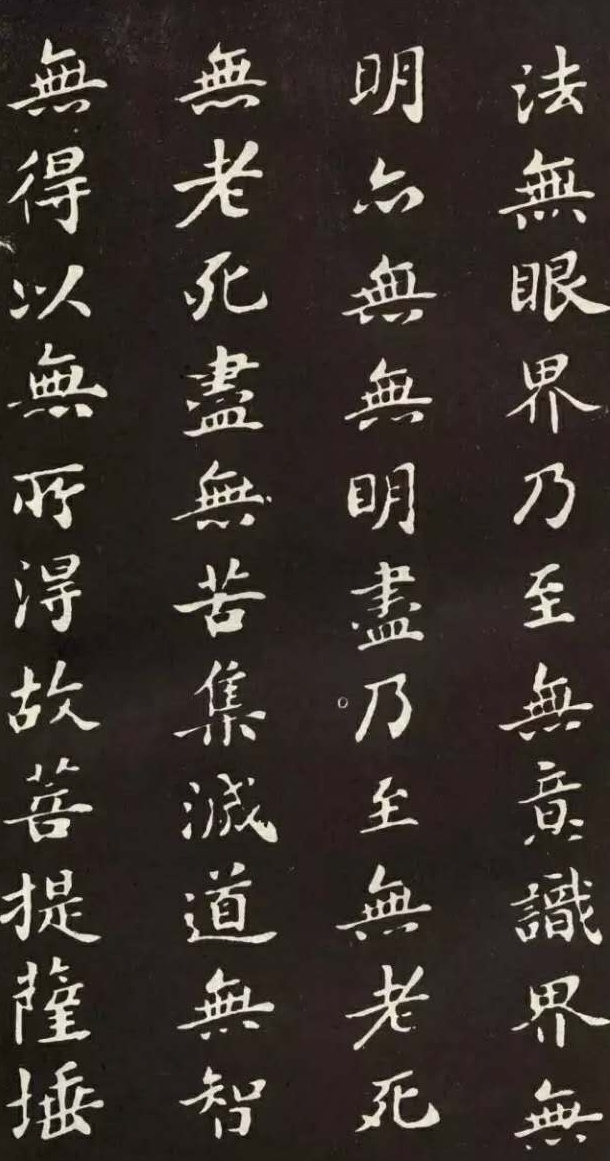 法無眼界乃至無意識界無
明亦無無明盡乃至無老死
無老死盡無苦集滅道無智
無得以無所得故菩提薩埵